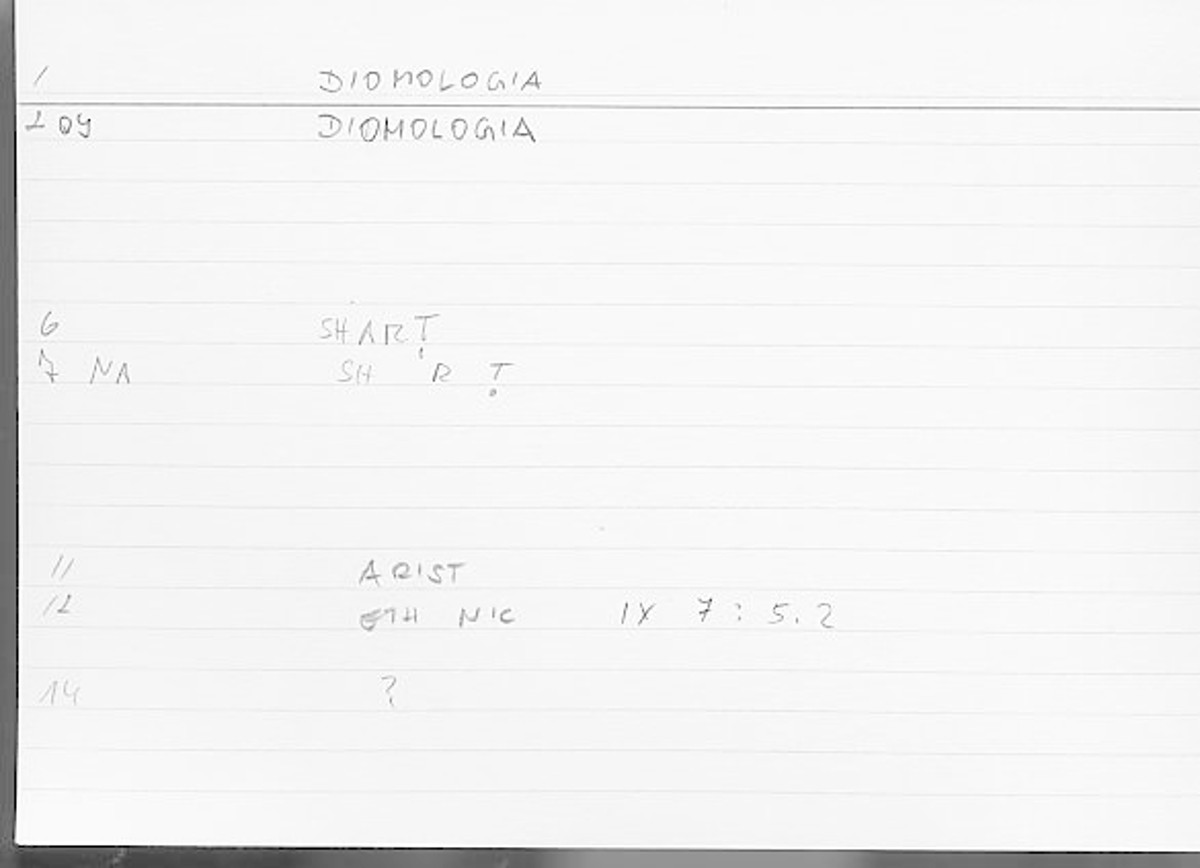 1 DIOMOLOGIA
2 OY DIOMOLOGIA
6 SHARṬ
7 NA SH R Ṭ
11 ARIST
12 ETH NIC IX 7 : 5.2
14 ?